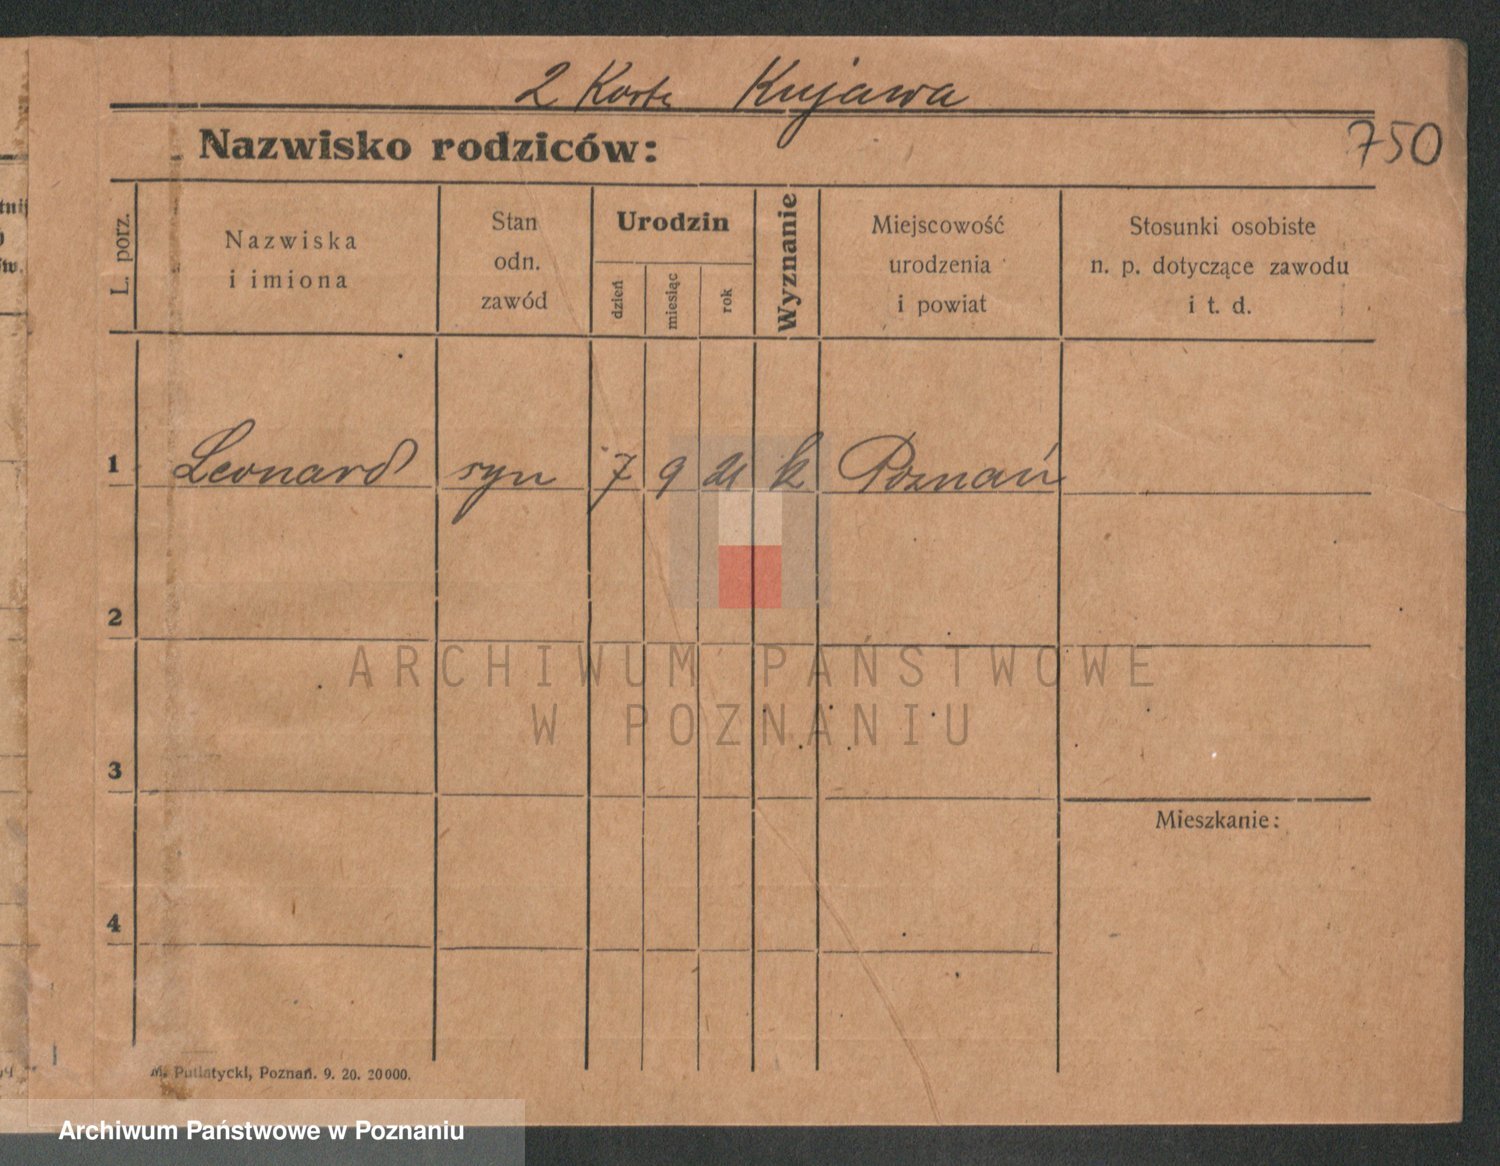 2 Karta Kujawa
750
Nazwisko rodziców:
L. porz.
Nazwiska
i imiona
Stan
odn.
zawód
Urodzin
dzień
miesiąc
rok
Wyznanie
Miejscowość
urodzenia
i powiat
Stosunki osobiste
n. p. dotyczące zawodu
i t. d.
1 Leonard syn 7 9 21 k Poznań
2
ARCHIWUM PAŃSTWOWE
W POZNANIU
3
Mieszkanie:
4
M. Putiatycki, Poznań. 9. 20. 20000.
Archiwum Państwowe w Poznaniu